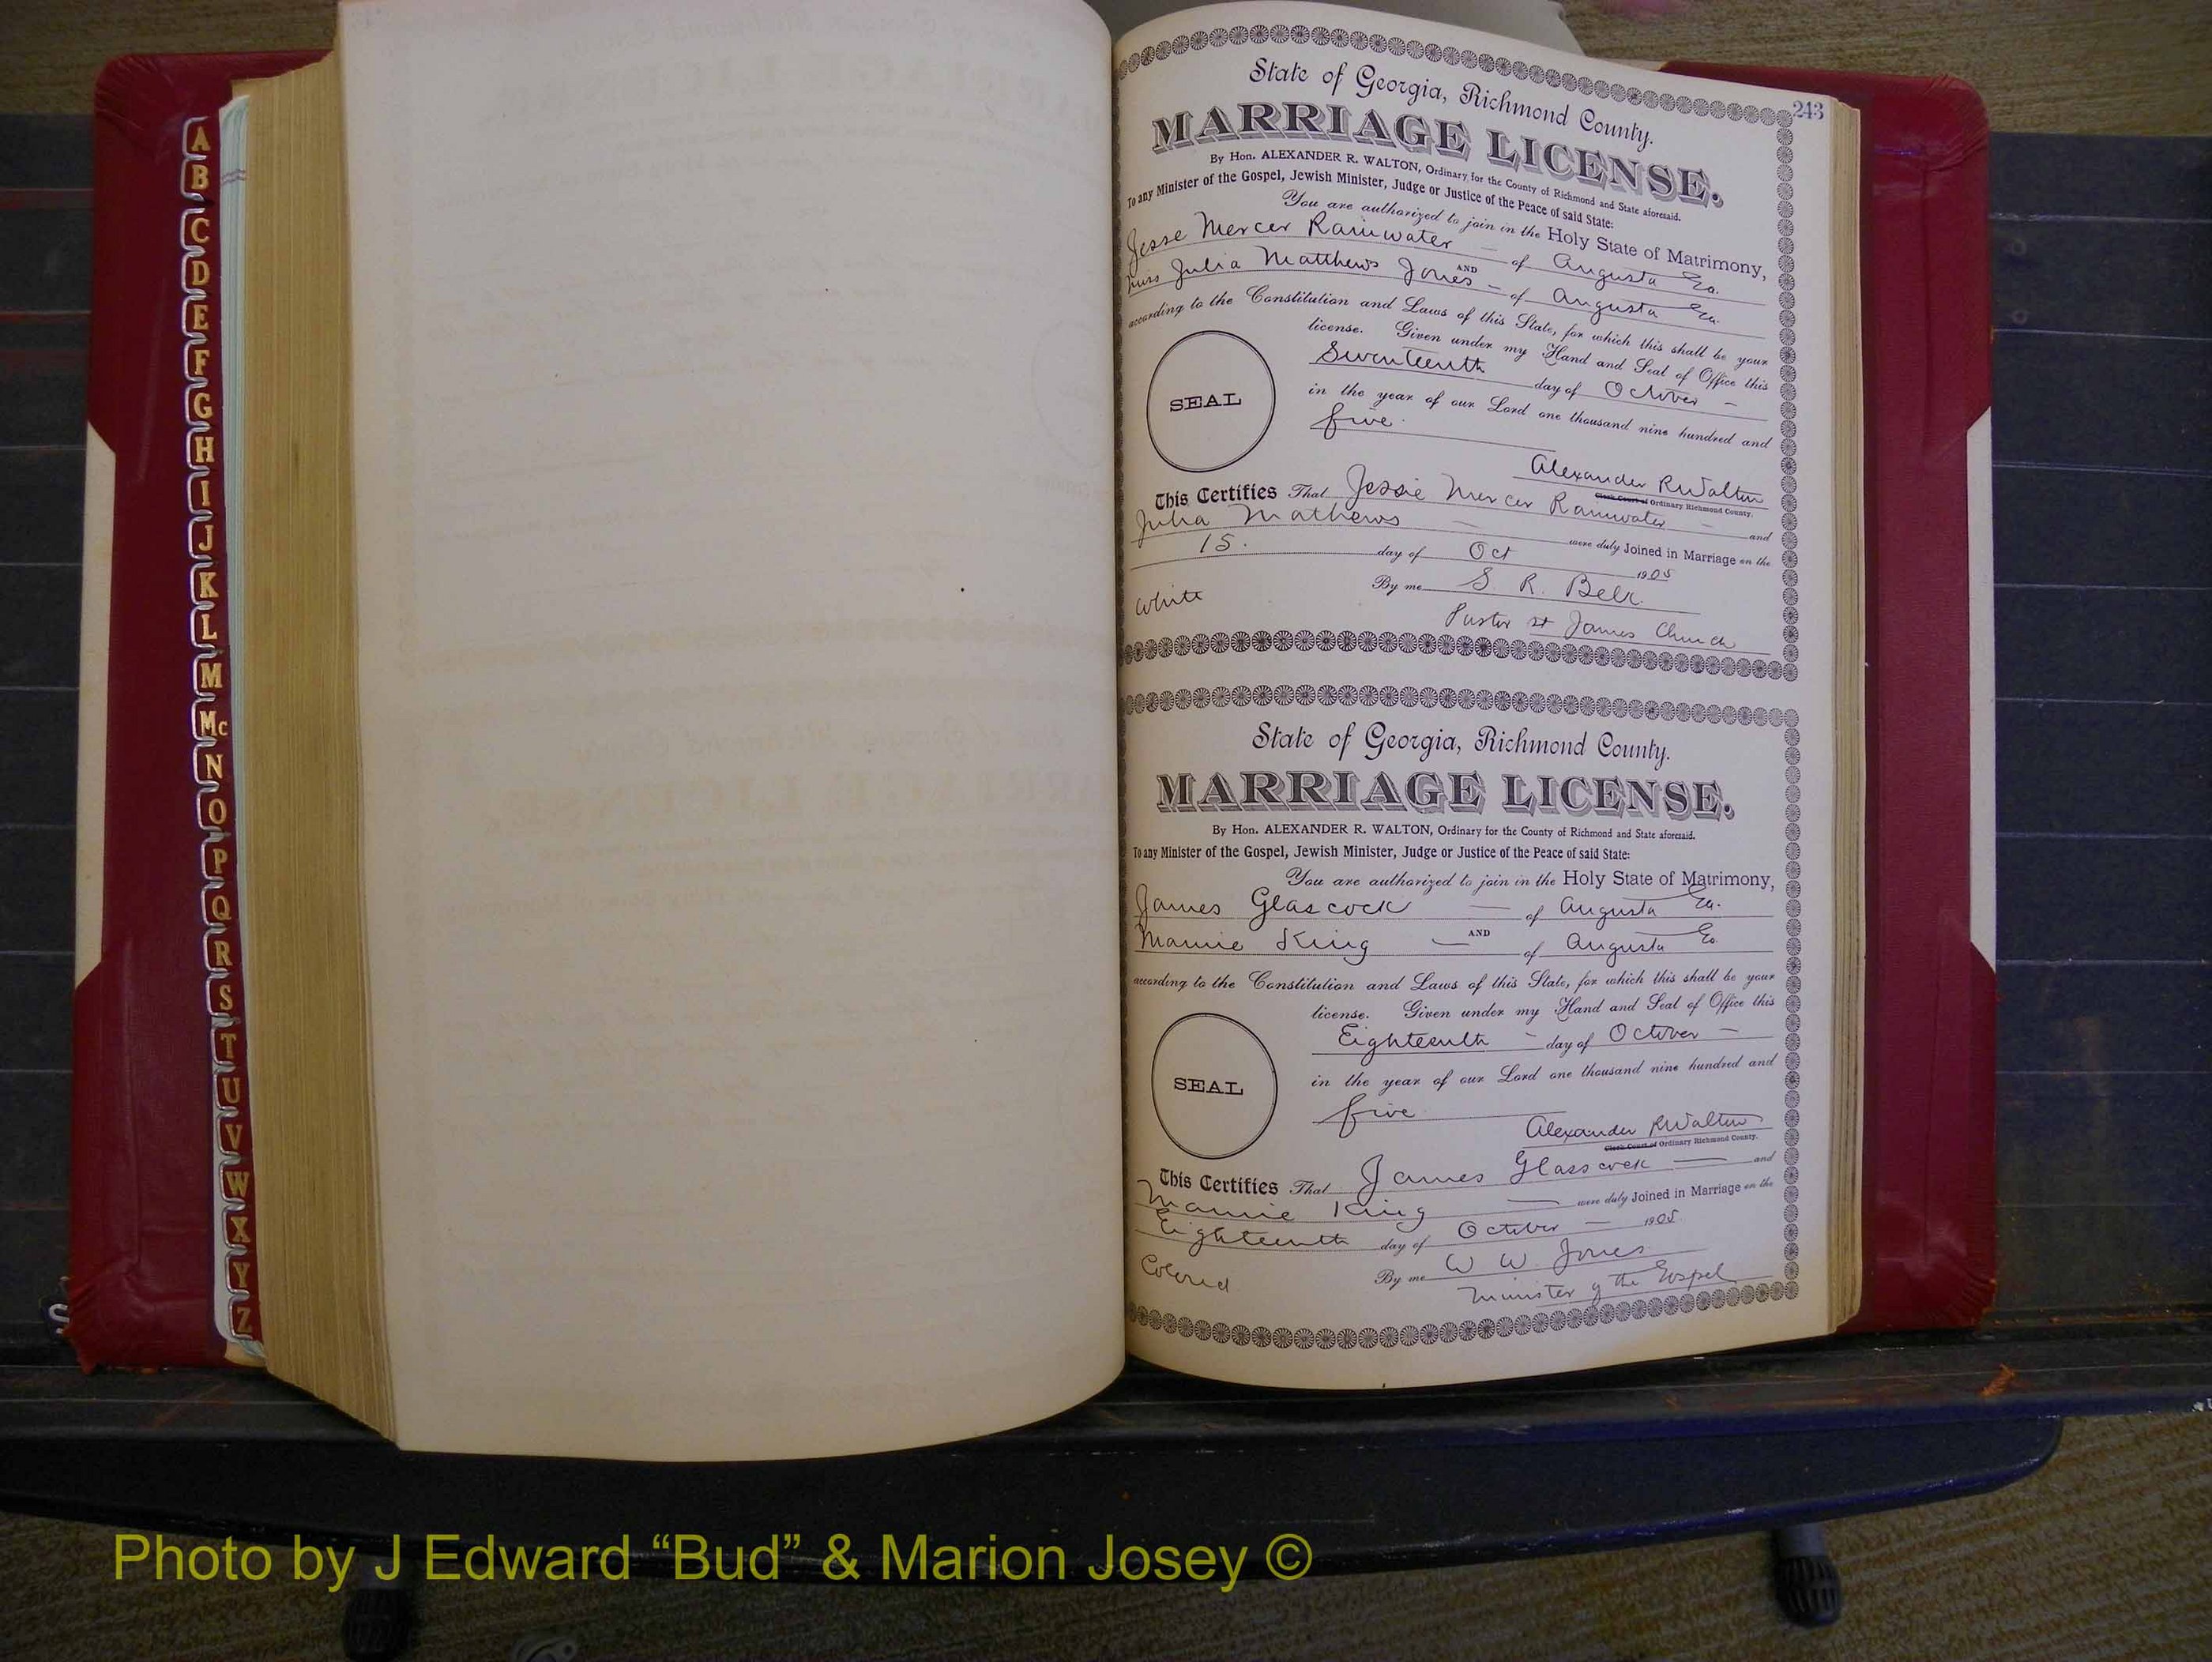 A
B
C
D
E
F
G
H
I
J
K
L
M
Mc
N
O
P
Q
R
S
T
U
V
W
X
Y
Z
243
State of Georgia, Richmond County.
MARRIAGE LICENSE.
By Hon. ALEXANDER R. WALTON, Ordinary for the County of Richmond and State aforesaid.
To any Minister of the Gospel, Jewish Minister, Judge or Justice of the Peace of said State:
You are authorized to join in the Holy State of Matrimony,
Jesse Mercer Rainwater — of Augusta Ga.
AND
Miss Julia Matthews Jones — of Augusta Ga.
according to the Constitution and Laws of this State, for which this shall be your
license. Given under my Hand and Seal of Office this
Seventeenth day of October —
SEAL
in the year of our Lord one thousand nine hundred and
five
Alexander R Walton
Clerk Court of Ordinary Richmond County.
This Certifies That Jessie Mercer Rainwater — and
Julia Mathews — were duly Joined in Marriage on the
18. day of Oct 1905
By me S. R. Belk
White
Pastor St James Church
State of Georgia, Richmond County.
MARRIAGE LICENSE.
By Hon. ALEXANDER R. WALTON, Ordinary for the County of Richmond and State aforesaid.
To any Minister of the Gospel, Jewish Minister, Judge or Justice of the Peace of said State:
You are authorized to join in the Holy State of Matrimony,
James Glascock — of Augusta Ga.
AND
Mamie King — of Augusta Ga.
according to the Constitution and Laws of this State, for which this shall be your
license. Given under my Hand and Seal of Office this
Eighteenth — day of October —
SEAL
in the year of our Lord one thousand nine hundred and
five
Alexander R Walton
Clerk Court of Ordinary Richmond County.
This Certifies That James Glasscock — and
Mamie King — were duly Joined in Marriage on the
Eighteenth day of October — 1905
By me W W Jones
Colored
Minister of the Gospel
Photo by J Edward “Bud” & Marion Josey ©